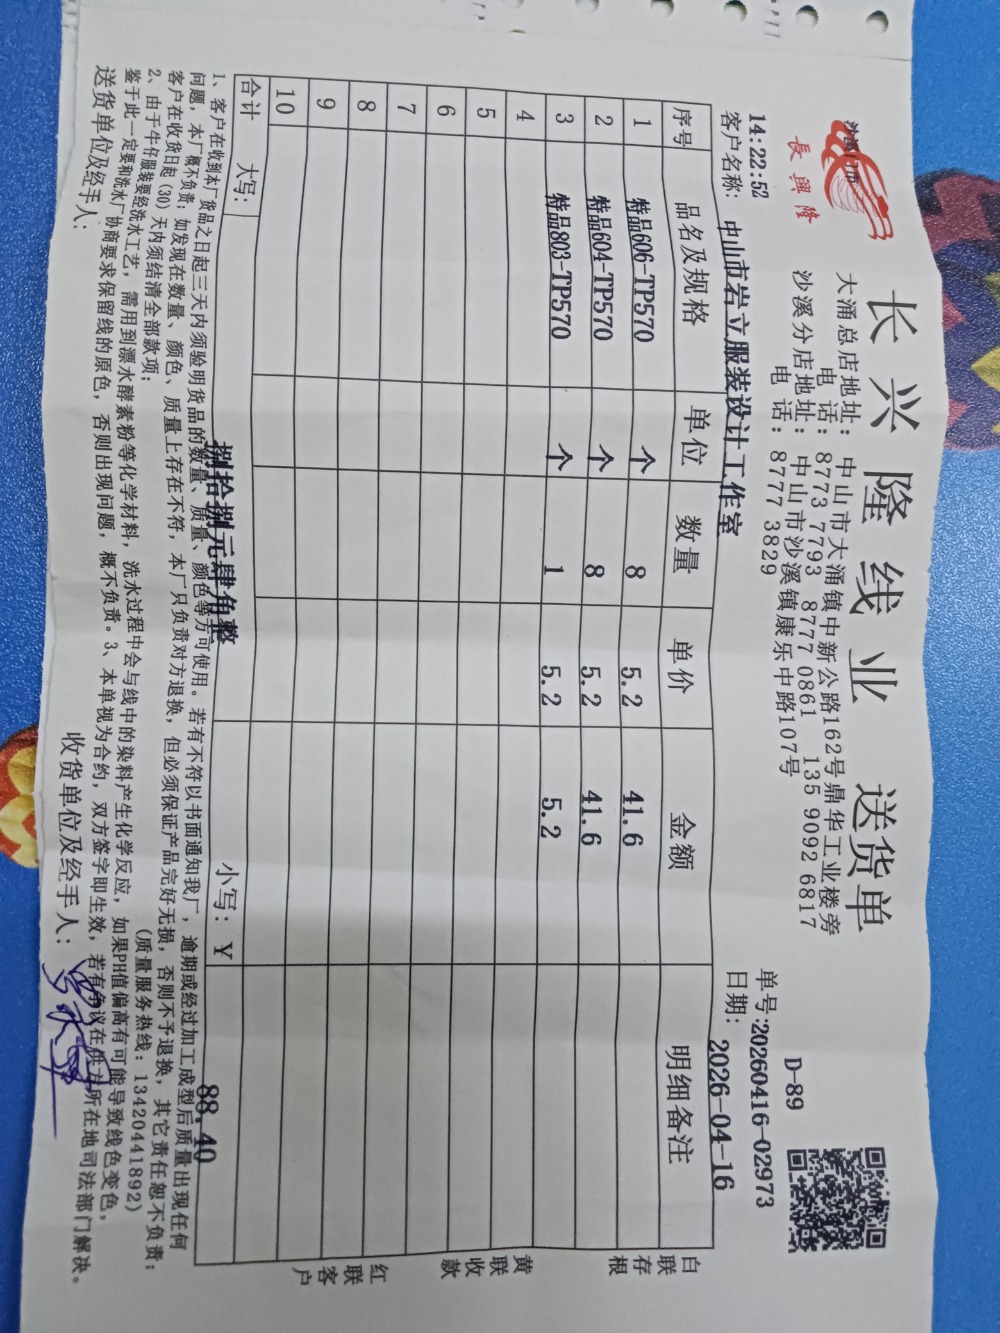 长兴隆线业 送货单
長興隆
大涌总店地址：中山市大涌镇中新公路162号鼎华工业楼旁
电 话：8773 7793 8777 0861 135 9092 6817
沙溪分店地址：中山市沙溪镇康乐中路107号
电 话：8777 3829
D-89
14:22:52
单号:20260416-02973
客户名称：中山市岩立服装设计工作室
日期：2026-04-16
序号 品名及规格 单位 数量 单价 金额 明细备注
1 特品606-TP570 个 8 5.2 41.6
2 特品604-TP570 个 8 5.2 41.6
3 特品803-TP570 个 1 5.2 5.2
4
5
6
7
8
9
10
合计 大写：捌拾捌元肆角整 小写：￥ 88.40
白联存根
黄联收款
红联客户
1、客户在收到本厂货品之日起三天内须验明货品的数量、质量、颜色等方可使用。若有不符以书面通知我厂，逾期或经过加工成型后质量出现任何
问题，本厂概不负责；如发现在数量、颜色、质量上存在不符，本厂只负责对方退换，但必须保证产品完好无损，否则不予退换，其它责任恕不负责；
客户在收货日起（30）天内须结清全部款项；（质量服务热线：13420441892）
2、由于牛仔服装要经洗水工艺，需用到漂水酵素粉等化学材料，洗水过程中会与线中的染料产生化学反应，如果PH值偏高有可能导致线色变色，
鉴于此一定要和洗水厂协商要求保留线的原色，否则出现问题，概不负责。3、本单视为合约，双方签字即生效，若有争议在供方所在地司法部门解决。
送货单位及经手人：
收货单位及经手人：